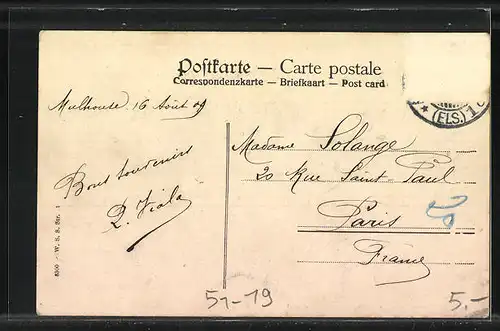 Postkarte — Carte postale
Correspondenzkarte — Briefkaart — Post card
(ELS.)
Mulhouse 16 Août 09
Bons souvenirs
Viala
Madame Solange
20 Rue Saint-Paul
Paris
France
8300 – W. S. S. Str. 1
51-19
5.-